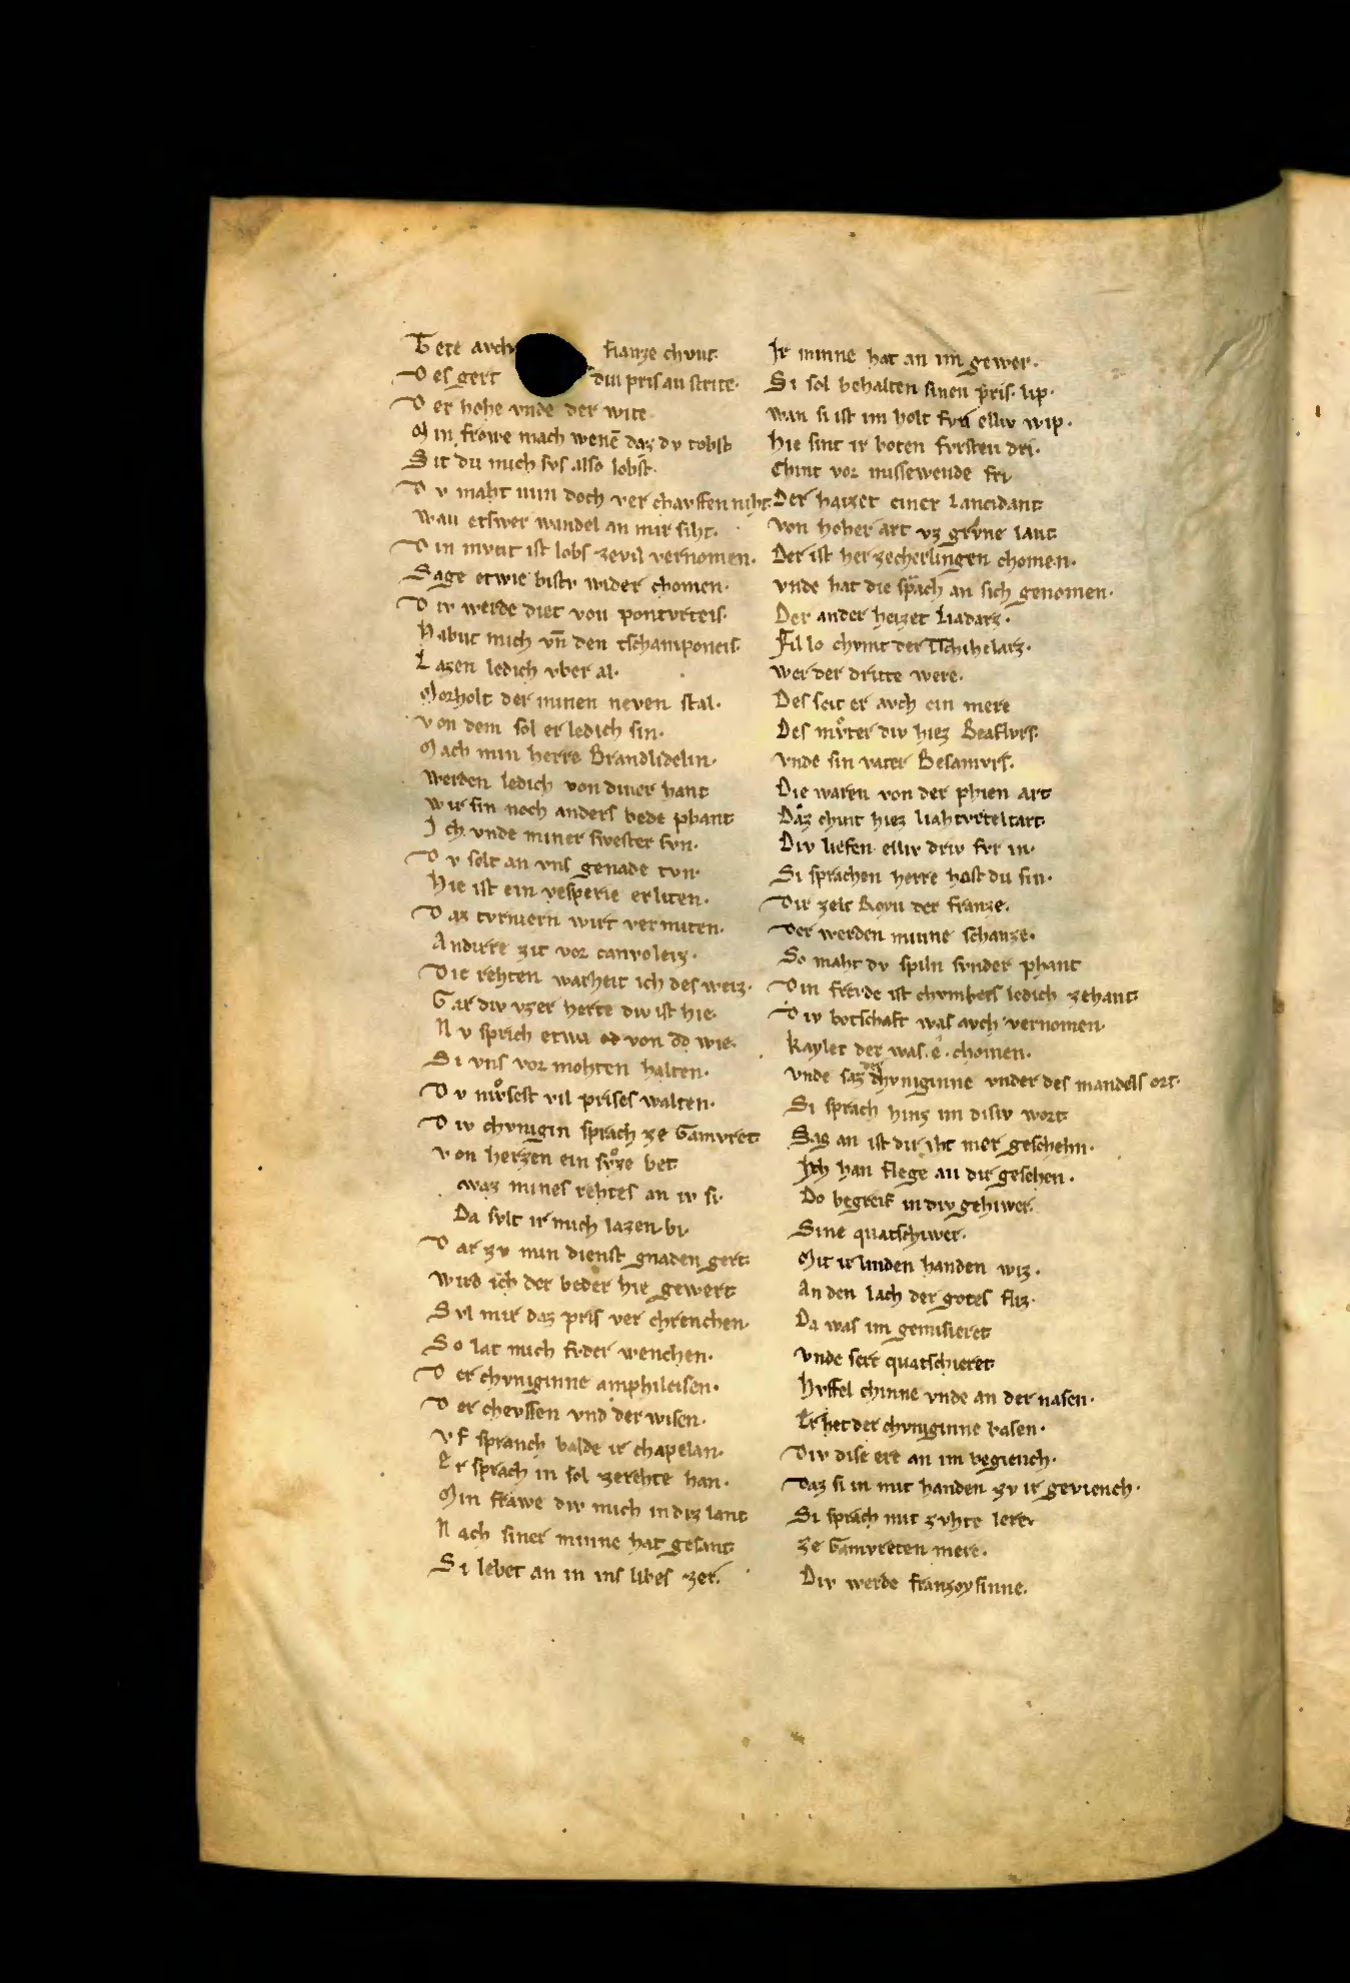 Tete avch fianze chvnt.
D es gert din pris an strite.
D er hohe vnde der wite
M in frowe mach wenē daz dv tobst
S it du mich svs also lobst.
D v maht min doch ver chavffen niht.
Wan etswer wandel an mir siht.
D in mvnt ist lobs zevil vernomen.
Sage etwie bistv wider chomen.
D iv werde diet von pontvrteis.
Habnt mich vn̄ den tschamponeis.
L azen ledich vber al.
Morholt der minen neven stal.
von dem sol er ledich sin.
Mach min herre Brandlidelin.
Werden ledich von diner hant
Wir sin noch anders bede phant
I ch vnde miner swester svn.
D v solt an vns genade tvn.
Hie ist ein vesperie erliten.
D az tvrniern wirt vermiten.
Andirre zit vor canvoleiz.
Die rehten warheit ich des weiz.
Gar div vzer herte div ist hie.
N v sprich etwa von dv wie.
Si vns vor mohten halten.
D v mv̊sest vil prises walten.
D iv chvnigin sprach ze Gamvret
von herzen ein sv̊ze bet
waz mines rehtes an iv si.
Da svlt ir mich lazen bi.
D ar zv min dienst gnaden gert.
Wird ich der beder hie gewert
Svl mir daz pris ver chrenchen.
So lat mich fvder wenchen.
D er chvniginne amphileisen.
D er chevssen vnd der wisen.
V f spranch balde ir chapelan.
Er sprach in sol zerehte han.
Min frawe div mich indiz lant
Nach siner minne hat gesant
Si lebet an in ins libes zer.
Ir minne hat an im gewer.
Si sol behalten sinen pris. lip.
wan si ist im holt fvr elliv wip.
hie sint ir boten fvrsten dri.
Chint vor missewende fri
Der haizet einer Lancidant
von hoher art vz grvne lant
Der ist her zecherlingen chomen.
vnde hat die sprach an sich genomen.
Der ander heizet Liadarz.
Fil lo chvnt der Tschihelarz.
wer der dritte were.
Des seit er avch ein mere
Des mv̊ter div hiez Beaflvrs.
vnde sin vater Besamvrs.
Die waren von der phien art
Daz chint hiez liahtvrteltart.
Div liefen elliv driv fvr in.
Si sprachen herre hast du sin.
Dir zelt Royn der franze.
Der werden minne schanze.
So maht dv spiln svnder phant
Din frevde ist chvmbers ledich zehant
D iv botschaft was avch vernomen.
Kaylet der was. e. chomen.
vnde saz der chvniginne vnder des mandels ort.
Si sprach hinz im disiv wort
Sag an ist dir iht mer geschehn.
Ich han slege an dir gesehen.
Do begreif in div gehiwer.
Sine quatschiwer.
Mit ir linden handen wiz.
An den lach der gotes fliz.
Da was im gemisieret
vnde sere quatschieret
Hvffel chinne vnde an der nasen.
Er het der chvniginne basen.
Div dise ere an im begiench.
Daz si in mit handen zv ir geviench.
Si sprach mit zvhte lere
Ze Gamvreten mere.
Div werde franzoysinne.